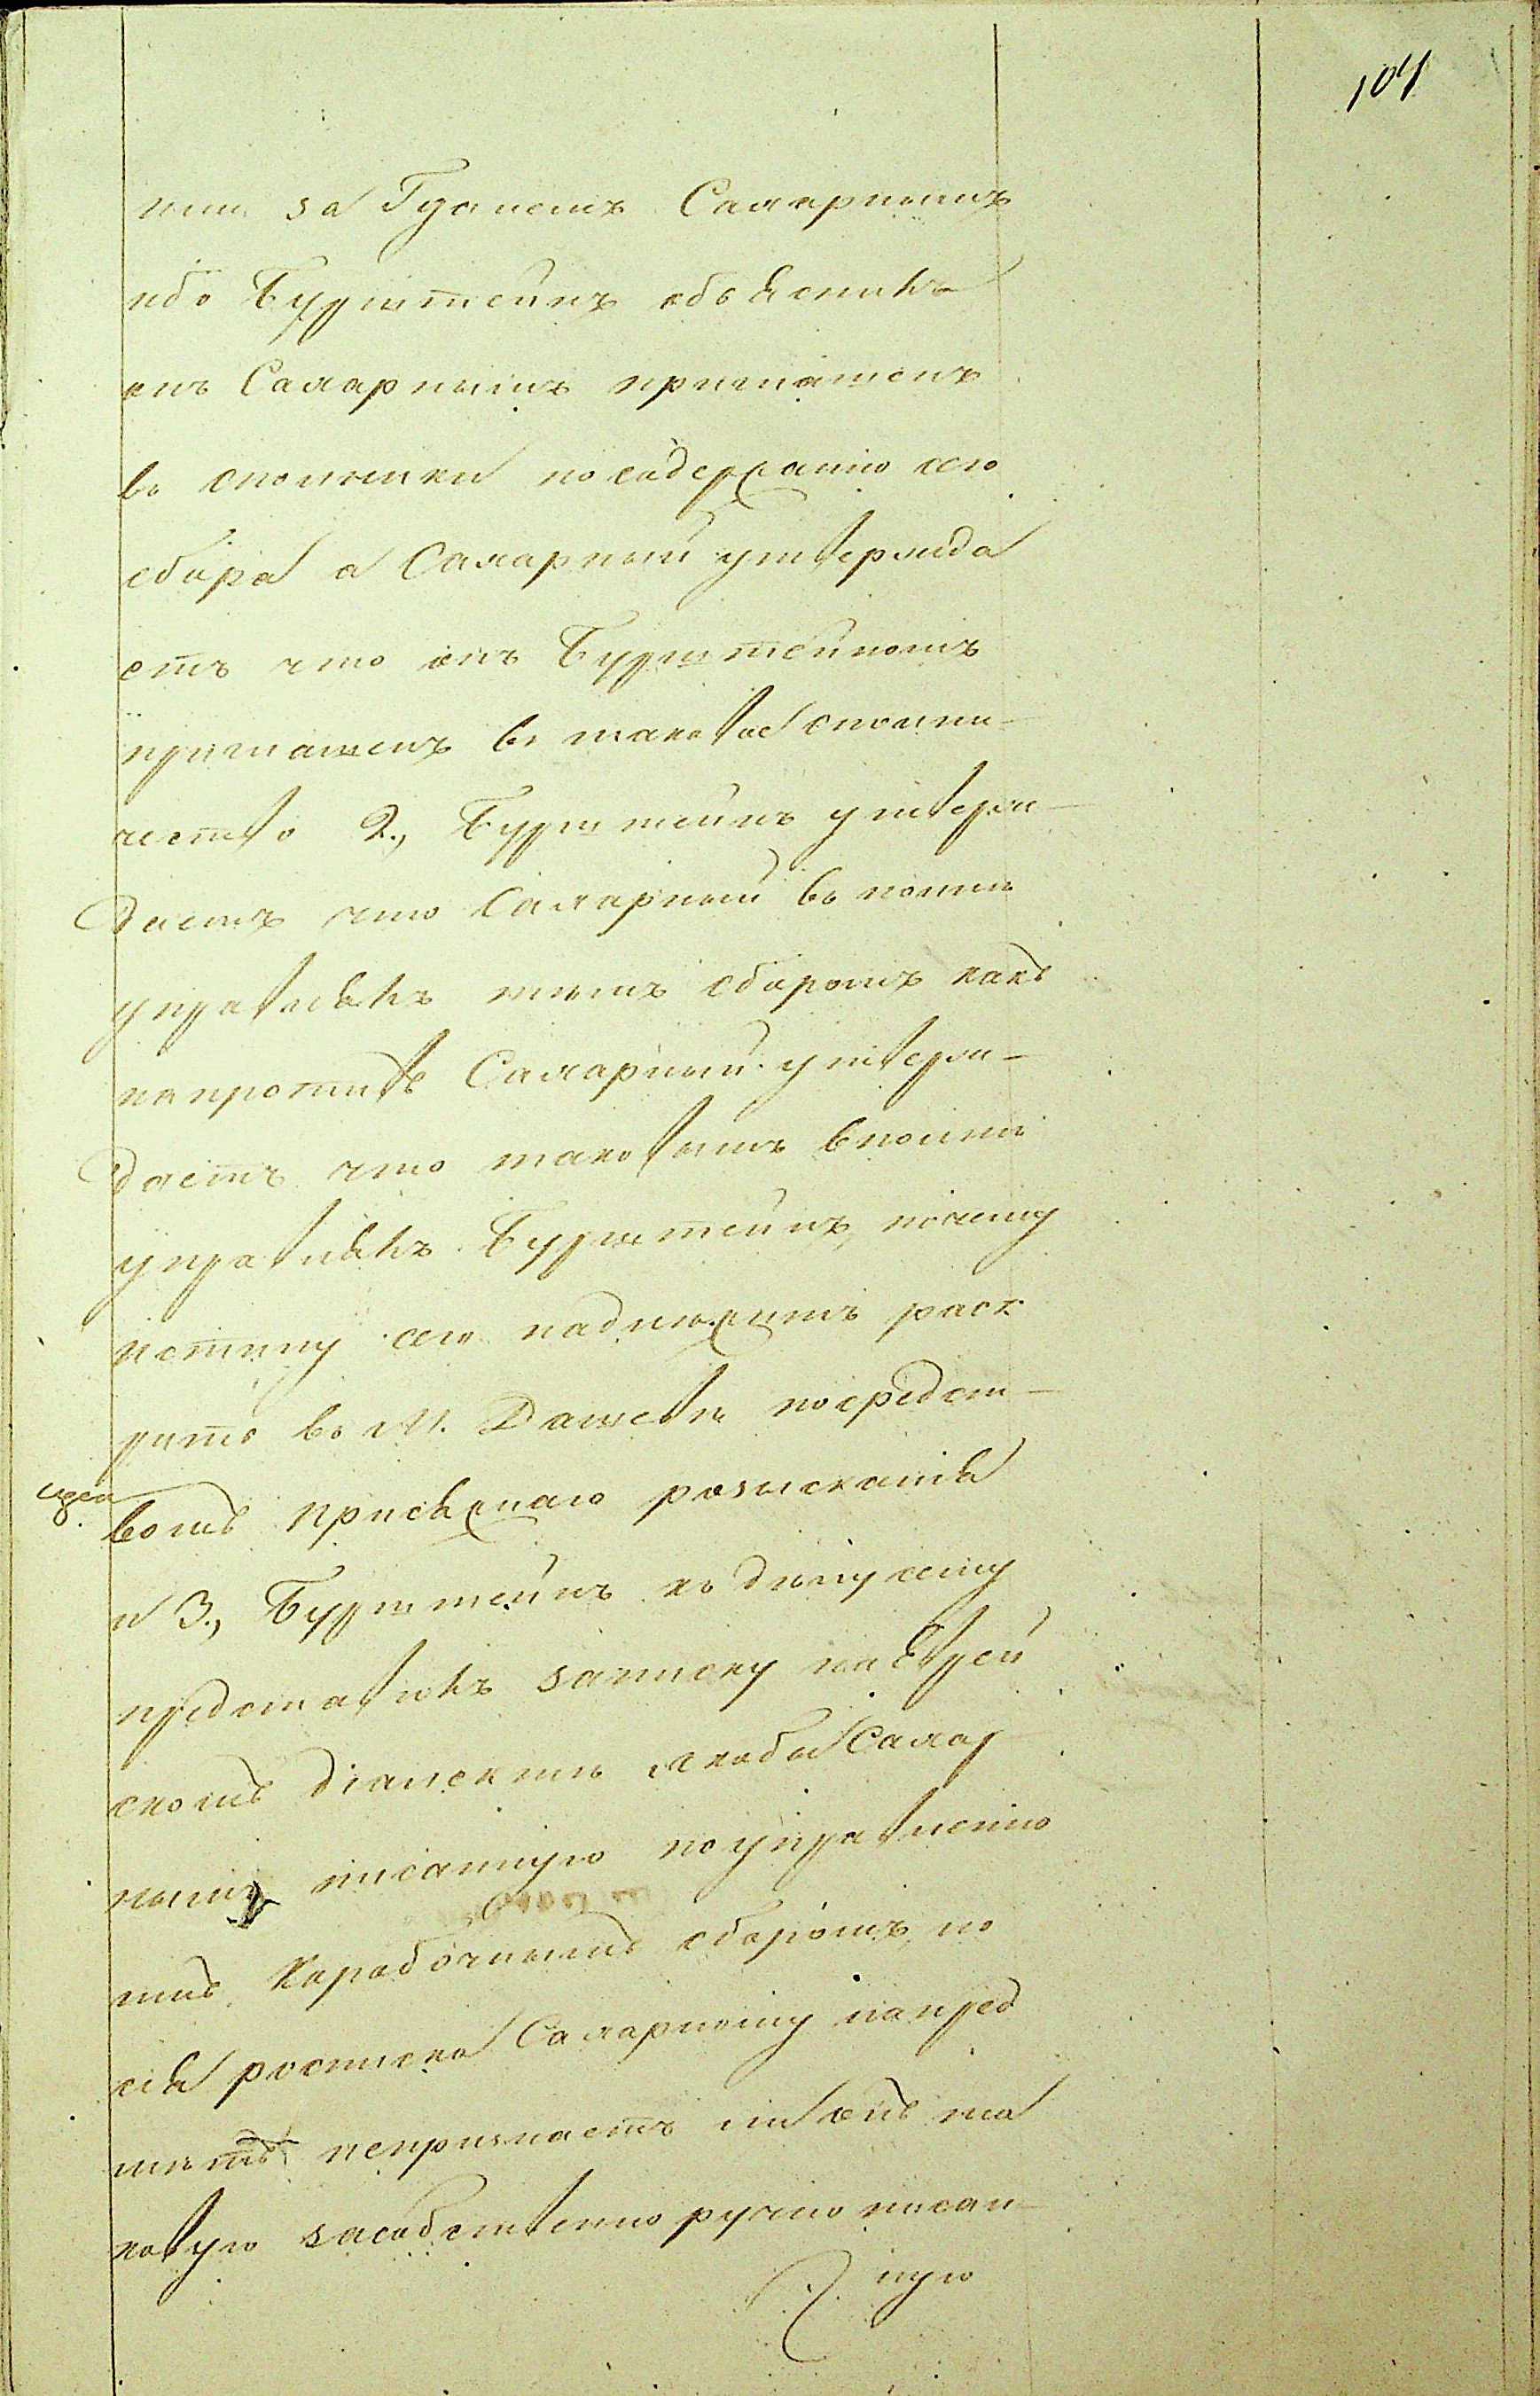 104
за Гусинемъ Сахарнымъ
ибо Бурштейнъ объяснилъ
онъ Сахарнымъ приглашенъ
въ спольники по содержанію сего
сбора а Сахарный утвержда
етъ что онъ Бурштейномъ
приглашенъ въ таковое спольни-
чество 2., Бурштейнъ утверж-
даетъ что Сахарный вполнѣ
управлялъ тѣмъ сборомъ какъ
на противъ Сахарный утверж-
даетъ что таковымъ вполнѣ
управлялъ Бурштейнъ, почему
истину сего надлежитъ раск
рыть въ М. Дашевѣ посредст-
вомъ присяжнаго розысканія
и 3., Бурштейнъ къ дѣлу сему
представилъ записку на Еврей
скомъ діалектѣ якобы Сахар
нымъ писанную по управленію
тѣмъ Коробочнымъ сборомъ, но
сія росписка Сахарному на пред
метъ непризнаетъ ли онъ та
ковую за собственно ручно писан-
ную